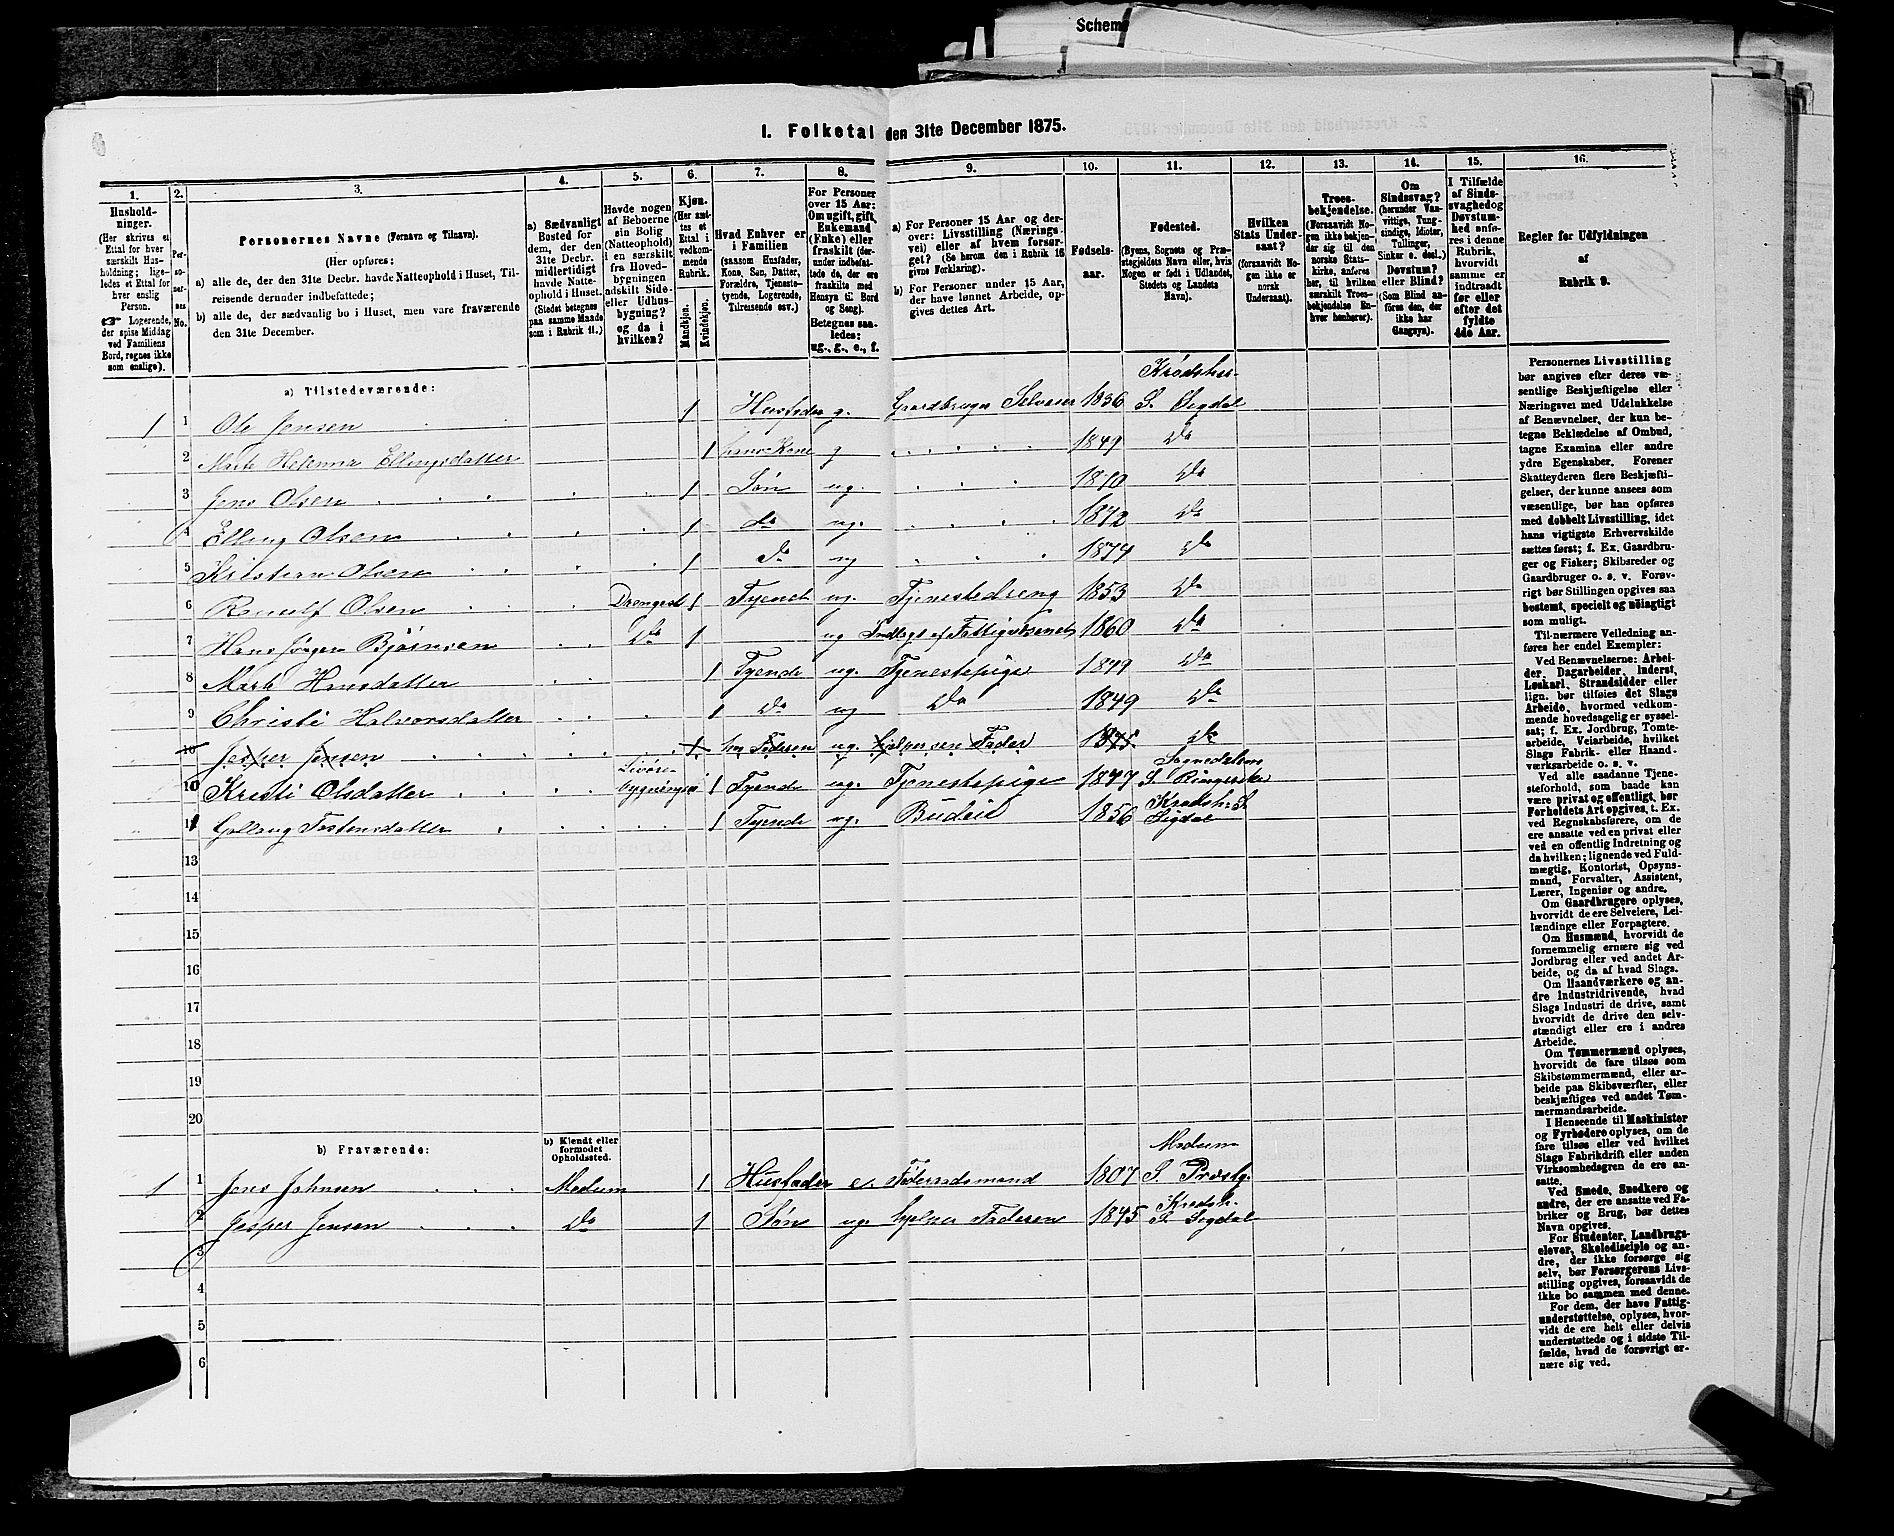 Schema
I. Folketal den 31te December 1875.
1. 2. 3. 4. 5. 6. 7. 8. 9. 10. 11. 12. 13. 14. 15. 16.
Hushold-
ninger.
(Her skrives et
Ettal for hver
særskilt Hus-
holdning; lige-
ledes et Ettal for
hver enslig
Person.
☞ Logerende,
der spise Middag
ved Familiens
Bord, regnes ikke
som enslige).
Per-
so-
ner-
nes
No.
Personernes Navne (Fornavn og Tilnavn).
(Her opføres:
a) alle de, der den 31te Decbr. havde Natteophold i Huset, Til-
reisende derunder indbefattede;
b) alle de, der sædvanlig bo i Huset, men vare fraværende
den 31te December.
a) Sædvanligt
Bosted for
dem, der den
31te Decbr.
midlertidigt
havde Natte-
ophold i Huset.
(Stedet betegnes
paa samme Maade
som i Rubrik 11.)
Havde nogen
af Beboerne
sin Bolig
(Natteophold)
i en særskilt
fra Hoved-
bygningen
adskilt Side-
eller Udhus-
bygning?
og da i
hvilken?
Kjøn.
(Her sæt-
tes et
Ettal i
vedkom-
mende
Rubrik.
Mandkjøn.
Kvindekjøn.
Hvad Enhver er
i Familien
(saasom Husfader,
Kone, Søn, Datter,
Forældre, Tjeneste-
tyende, Logerende,
Tilreisende osv.)
For Personer
over 15 Aar:
Om ugift, gift,
Enkemand
(Enke) eller
fraskilt (der-
under indbefat-
tede de, der ere
fraskilte med
Hensyn til Bord
og Seng).
Betegnes saa-
ledes:
ug., g., e., f.
a) For Personer 15 Aar og der-
over: Livsstilling (Nærings-
vei) eller af hvem forsør-
get? (Se herom den i Rubrik 16
givne Forklaring).
b) For Personer under 15 Aar,
der have lønnet Arbeide, op-
gives dettes Art.
Fødsels-
aar.
Fødested.
(Byens, Sognets og Præ-
stegjeldets Navn eller, hvis
Nogen er født i Udlandet,
Stedets og Landets
Navn).
Hvilken
Stats Under-
saat?
(forsaavidt No-
gen ikke er
norsk
Undersaat).
Troes-
bekjendelse.
(Forsaavidt No-
gen ikke bekjen-
der sig til den
norske Stats-
kirke, anføres
her, til hvilken
særskilt Troes-
bekjendelse En-
hver henhører).
Om
Sindssvag?
(herunder Van-
vittige, Tung-
sindige, Idioter,
Tullinger,
Sinker o. desl.)
Døvstum?
eller Blind?
(Som Blind an-
føres den, der
ikke har
Gangsyn).
I Tilfælde
af Sinds-
svaghed og
Døvstum-
hed anfø-
res i denne
Rubrik,
hvorvidt
samme er
indtraadt
før eller
efter det
fyldte
4de Aar.
Regler for Udfyldningen
af
Rubrik 9.
a) Tilstedeværende:
Krødsher.
1 1 Ole Jensen 1 Husfader g. Gaardbruger Selveier 1836 S. Sigdal
2 Marte Helenna Ellingsdatter 1 hans Kone g 1849 Do
3 Jens Olsen 1 Søn ug. 1870 Do
4 Elling Olsen 1 do ug. 1872 Do
5 Kristern Olsen 1 do ug 1874 Do
6 Olsen 1 Tyende ug. Tjenestedreng 1853 Do
7 Hans Jørgen Bjørnsen Do 1 ug Indlagt af Fattigvæsenet 1860 Do
8 Marte Hansdatter 1 Tyende ug. Tjenestepige 1849 Do
9 Christi Halvorsdatter 1 Do ug Do 1849 Do
10 Jesper Jensen 1 hos Faderen ug. hjelper sin Fader 1845 Do
Sognedalen
10 Kristi Olsdatter 1 Tyende ug. Tjenestepige 1847 S. Ringerike
11 Torstensdatter 1 Tyende ug. Budeie 1856 Krødsh. S. Sigdal
13
14
15
16
17
18
19
20
b) Fraværende:
b) Kjendt eller
formodet
Opholdssted.
Modum
1 1 Jens Johnsen Modum 1 Husfader e. Føderaadsmand 1807 S. Præstg.
2 Jesper Jensen Do 1 Søn ug. hjelper Faderen 1845 Krødsh. S. Sigdal
3
4
5
6
Personernes Livsstilling
bør angives efter deres væ-
sentlige Beskjæftigelse eller
Næringsvei med Udelukkelse
af Benævnelser, der kun be-
tegne Beklædelse af Ombud,
tagne Examina eller andre
ydre Egenskaber. Forener
Skatteyderen flere Beskjæfti-
gelser, der kunne ansees som
væsentlige, bør han opføres
med dobbelt Livsstilling, idet
hans vigtigste Erhvervskilde
sættes først; f. Ex. Gaardbru-
ger og Fisker; Skibsreder og
Gaardbruger o. s. v. Forøv-
rigt bør Stillingen opgives saa
bestemt, specielt og nøiagtigt
som muligt.
Til nærmere Veiledning an-
føres her endel Exempler:
Ved Benævnelserne: Arbei-
der, Dagarbeider, Inderst,
Løskarl, Strandsidder eller
lign. bør tilføies det Slags
Arbeide, hvormed vedkom-
mende hovedsagelig er syssel-
sat; f. Ex. Jordbrug, Tomte-
arbeide, Veiarbeide, hvilket
Slags Fabrik- eller Haand-
værksarbeide o. s. v.
Ved alle saadanne Tjene-
steforhold, som baade kan
være privat og offentligt, bør
Forholdets Art opgives, t. Ex.
ved Regnskabsførere, om de
ere ansatte ved en privat eller
ved en offentlig Indretning og
da hvilken; lignende ved Fuld-
mægtig, Kontorist, Opsyns-
mand, Forvalter, Assistent,
Lærer, Ingeniør og andre.
Om Gaardbrugere oplyses,
hvorvidt de ere Selveiere, Lei-
lændinge eller Forpagtere.
Om Husmænd, hvorvidt de
fornemmelig ernære sig ved
Jordbrug eller ved andet Ar-
beide, og da af hvad Slags.
Om Haandværkere og an-
dre Industridrivende, hvad
Slags Industri de drive, samt
hvorvidt de drive den selv-
stændigt eller ere i andres
Arbeide.
Om Tømmermænd oplyses,
hvorvidt de fare tilsøs som
Skibstømmermænd, eller ar-
beide paa Skibsværfter, eller
beskjæftiges ved andet Tøm-
mermandsarbeide.
I Henseende til Maskinister
og Fyrbødere oplyses, om de
fare tilsøs eller ved hvilket
Slags Fabrikdrift eller anden
Virksomhedsgren de ere an-
satte.
Ved Smede, Snedkere og
andre, der ere ansatte ved Fa-
briker og Brug, bør dettes
Navn opgives.
For Studenter, Landbrugs-
elever, Skoledisciple og an-
dre, der ikke forsørge sig
selv, bør Forsørgerens Livs-
stilling opgives, forsaavidt de
ikke bo sammen med denne.
For dem, der have Fattig-
understøttelse, oplyses, hvor-
vidt de ere helt eller delvis
understøttede og i sidste Til-
fælde, hvad de forøvrigt er-
nære sig ved.